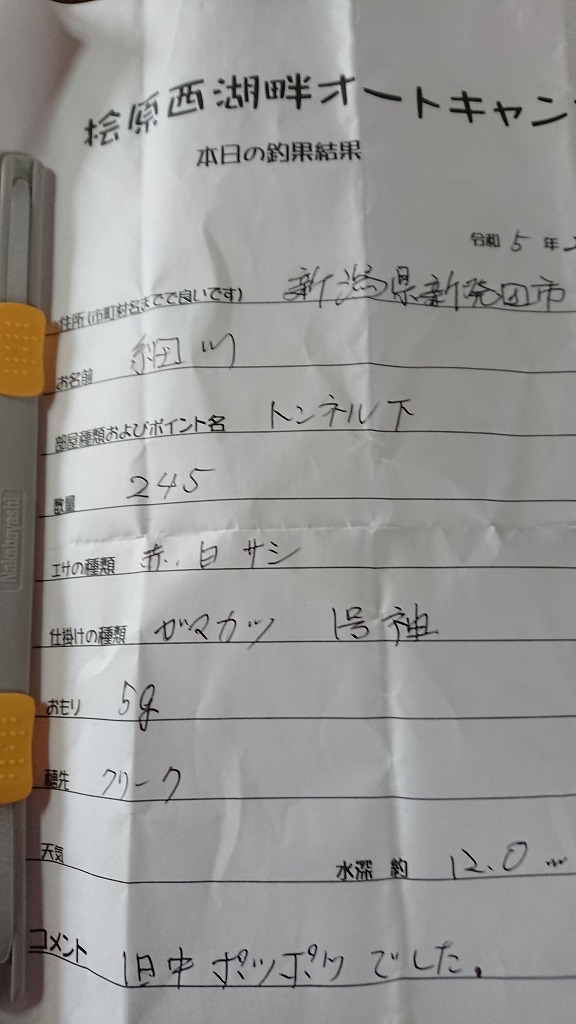 桧原西湖畔オートキャン
本日の釣果結果
令和 5 年
住所(市町村名までで良いです) 新潟県新発田市
お名前 細川
部屋種類およびポイント名 トンネル下
数量 245
エサの種類 赤.白サシ
仕掛けの種類 ガマカツ 1号 神
おもり 5g
穂先 クリーク
天気 水深 約 12.0 m
コメント 1日中ポツポツでした。
Nakabayashi